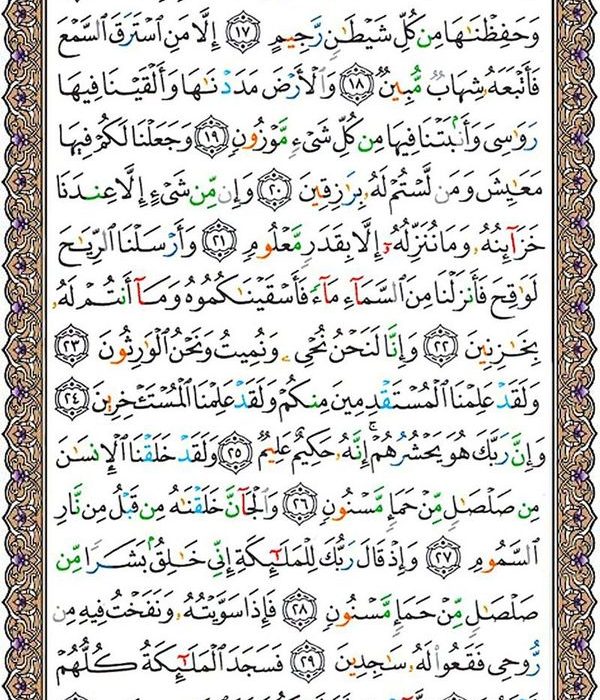 وَحَفِظْنَـٰهَا مِن كُلِّ شَيْطَـٰنٍ رَّجِيمٍ ﴿١٧﴾ إِلَّا مَنِ ٱسْتَرَقَ ٱلسَّمْعَ
فَأَتْبَعَهُۥ شِهَابٌ مُّبِينٌ ﴿١٨﴾ وَٱلْأَرْضَ مَدَدْنَـٰهَا وَأَلْقَيْنَا فِيهَا
رَوَٰسِىَ وَأَنۢبَتْنَا فِيهَا مِن كُلِّ شَىْءٍ مَّوْزُونٍ ﴿١٩﴾ وَجَعَلْنَا لَكُمْ فِيهَا
مَعَـٰيِشَ وَمَن لَّسْتُمْ لَهُۥ بِرَٰزِقِينَ ﴿٢٠﴾ وَإِن مِّن شَىْءٍ إِلَّا عِندَنَا
خَزَآئِنُهُۥ وَمَا نُنَزِّلُهُۥٓ إِلَّا بِقَدَرٍ مَّعْلُومٍ ﴿٢١﴾ وَأَرْسَلْنَا ٱلرِّيَـٰحَ
لَوَٰقِحَ فَأَنزَلْنَا مِنَ ٱلسَّمَآءِ مَآءً فَأَسْقَيْنَـٰكُمُوهُ وَمَآ أَنتُمْ لَهُۥ
بِخَـٰزِنِينَ ﴿٢٢﴾ وَإِنَّا لَنَحْنُ نُحْىِۦ وَنُمِيتُ وَنَحْنُ ٱلْوَٰرِثُونَ ﴿٢٣﴾
وَلَقَدْ عَلِمْنَا ٱلْمُسْتَقْدِمِينَ مِنكُمْ وَلَقَدْ عَلِمْنَا ٱلْمُسْتَـْٔخِرِينَ ﴿٢٤﴾
وَإِنَّ رَبَّكَ هُوَ يَحْشُرُهُمْ ۚ إِنَّهُۥ حَكِيمٌ عَلِيمٌ ﴿٢٥﴾ وَلَقَدْ خَلَقْنَا ٱلْإِنسَـٰنَ
مِن صَلْصَـٰلٍ مِّنْ حَمَإٍ مَّسْنُونٍ ﴿٢٦﴾ وَٱلْجَآنَّ خَلَقْنَـٰهُ مِن قَبْلُ مِن نَّارِ
ٱلسَّمُومِ ﴿٢٧﴾ وَإِذْ قَالَ رَبُّكَ لِلْمَلَـٰٓئِكَةِ إِنِّى خَـٰلِقٌۢ بَشَرًا مِّن
صَلْصَـٰلٍ مِّنْ حَمَإٍ مَّسْنُونٍ ﴿٢٨﴾ فَإِذَا سَوَّيْتُهُۥ وَنَفَخْتُ فِيهِ مِن
رُّوحِى فَقَعُوا۟ لَهُۥ سَـٰجِدِينَ ﴿٢٩﴾ فَسَجَدَ ٱلْمَلَـٰٓئِكَةُ كُلُّهُمْ